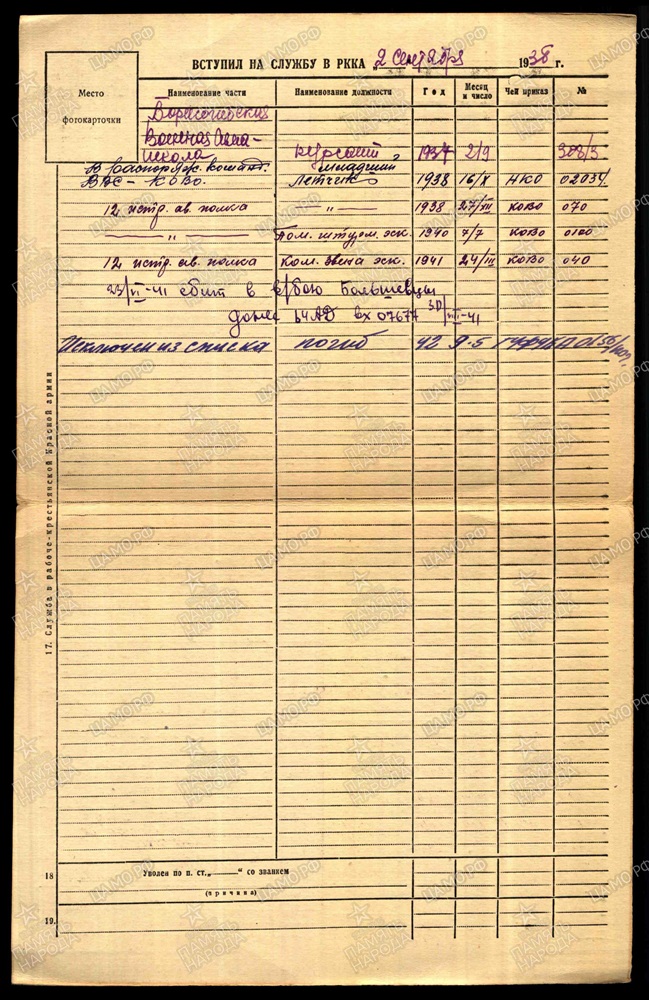 ВСТУПИЛ НА СЛУЖБУ В РККА 2 сентября 1938 г.
Место фотокарточки
Наименование части Наименование должности Год Месяц и число Чей приказ №
Военная Авиа-
школа курсант 1937 2/9 308/3
В распоряж. команд. младший
ВВС - КОВО. Летчик 1938 16/X НКО 02034.
12 истр. ав. полка — „ — 1938 27/XII КОВО 070
— „ — Пом. штурм. эск. 1940 7/7 КОВО 0100
12 истр. ав. полка Ком. звена эск. 1941 24/III КОВО 040
23/VI-41 сбит в в/бою
64АД вх 07677 30/VIII-41
Исключен из списка погиб 42 9-5
17. Служба в рабоче-крестьянской Красной армии
18 Уволен по п. ст. „——“ со званием
(причина)
19.
ЦАМО.РФ
ПАМЯТЬ НАРОДА